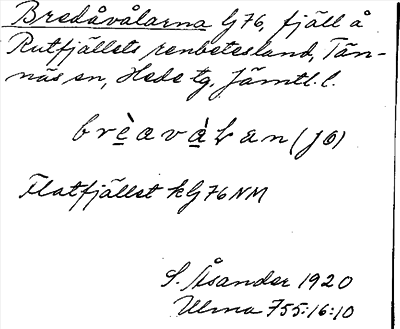 Bredåvålarna G 76, fjäll å
Rutfjällets renbetesland, Tän-
näs sn, Hede tg, Jämtl. l.
brèavàƚan (JÖ)
Flatfjället kG 76 NM
S. Åsander 1920
Ulma 755:16:10